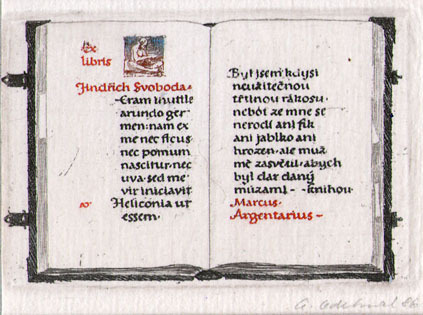 Ex
libris
Jindřich Svoboda
Eram inutile
arundo ger
men: nam ex
me nec ficus
nec pomum
nascitur, nec
uva. sed me
vir iniciavit
Heliconia ut
essem.
Byl jsem kdysi
neužitečnou
třtinou rákosu.
neboť ze mne se
nerodí ani fík
ani jablko ani
hrozen. ale muž
mě zasvětil, abych
byl dar daný
múzami - - knihou.
Marcus
Argentarius -